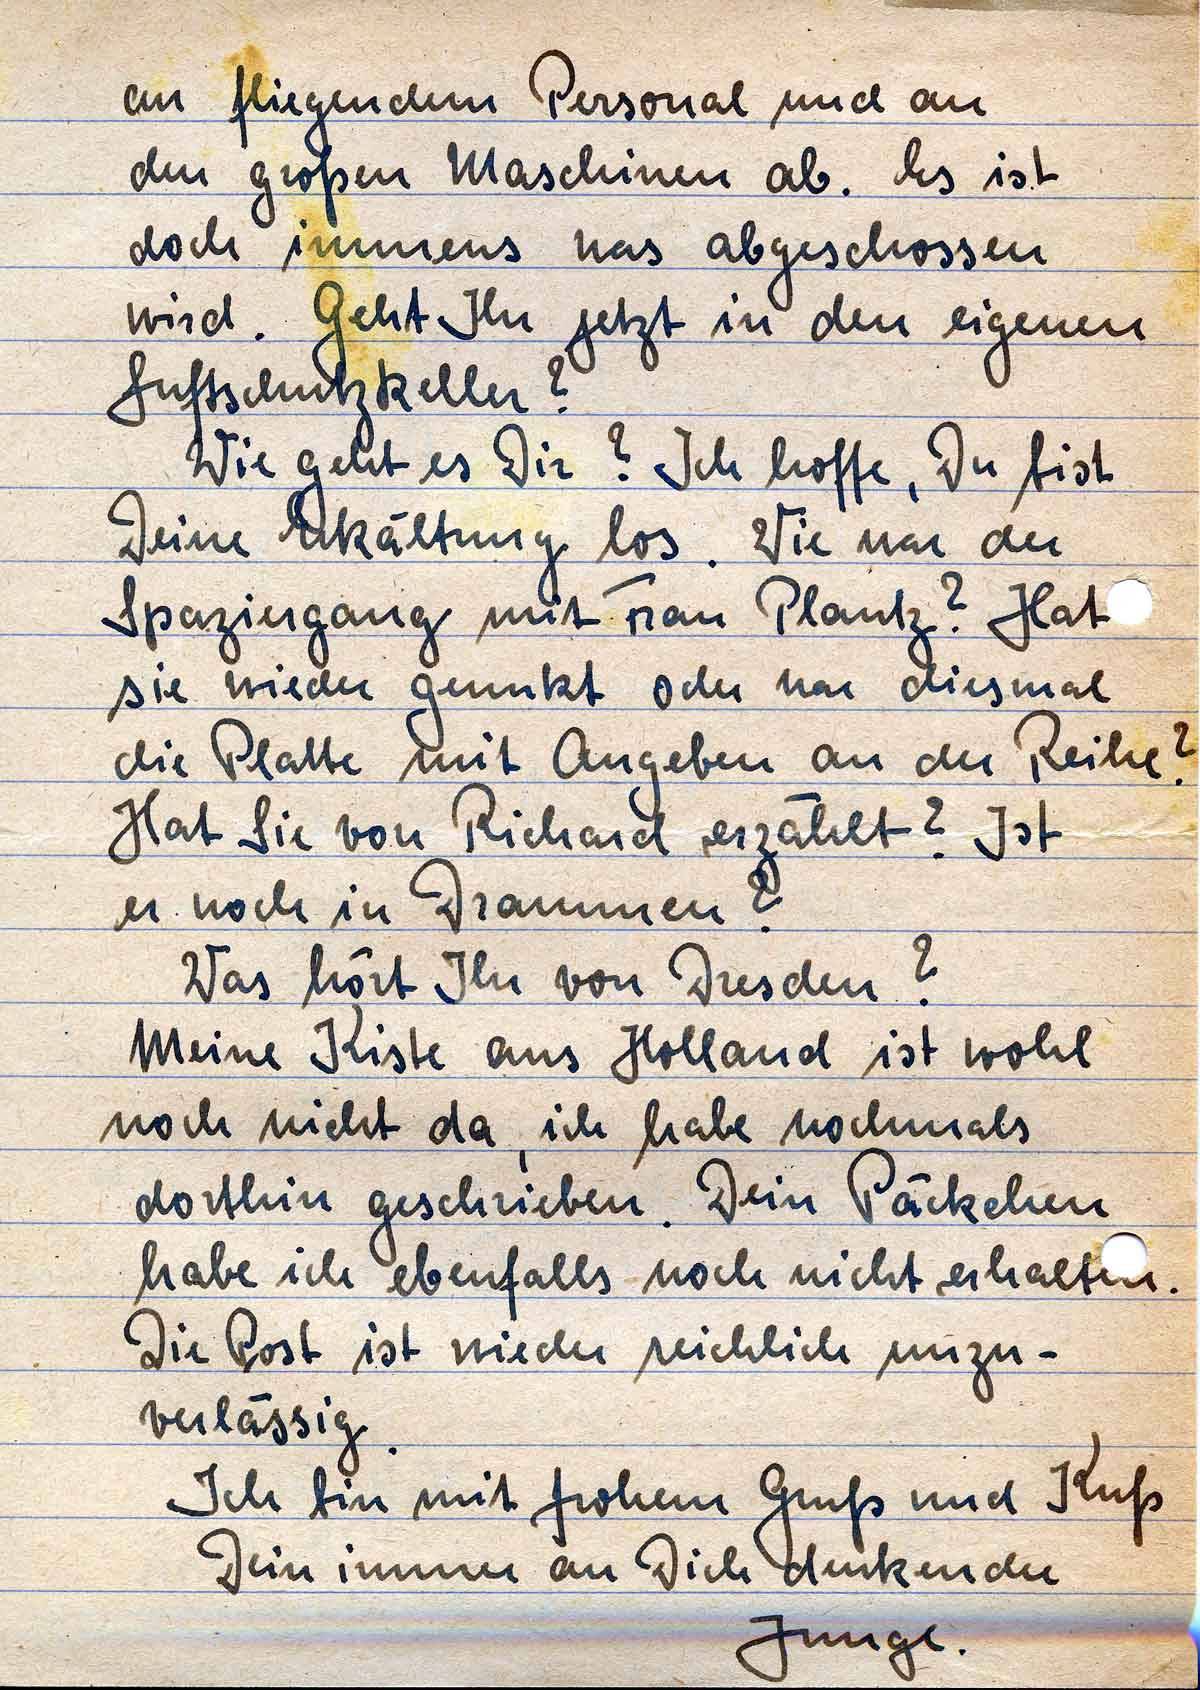 an fliegendem Personal und an
den großen Maschinen ab. Es ist
doch immens was abgeschossen
wird. Geht Ihr jetzt in den eigenen
Luftschutzkeller?
Wie geht es Dir? Ich hoffe, Du bist
Deine Erkältung los. Wie war der
Spaziergang mit Frau Plantz? Hat
sie wieder geunkt oder war diesmal
die Platte mit Angeben an der Reihe?
Hat Sie von Richard erzählt? Ist
er noch in Drammen?
Was hört Ihr von Dresden?
Meine Kiste aus Holland ist wohl
noch nicht da, ich habe nochmals
dorthin geschrieben. Dein Päckchen
habe ich ebenfalls noch nicht erhalten.
Die Post ist wieder reichlich unzu-
verlässig.
Ich bin mit frohem Gruß und Kuß
Dein immer an Dich denkender
Junge.